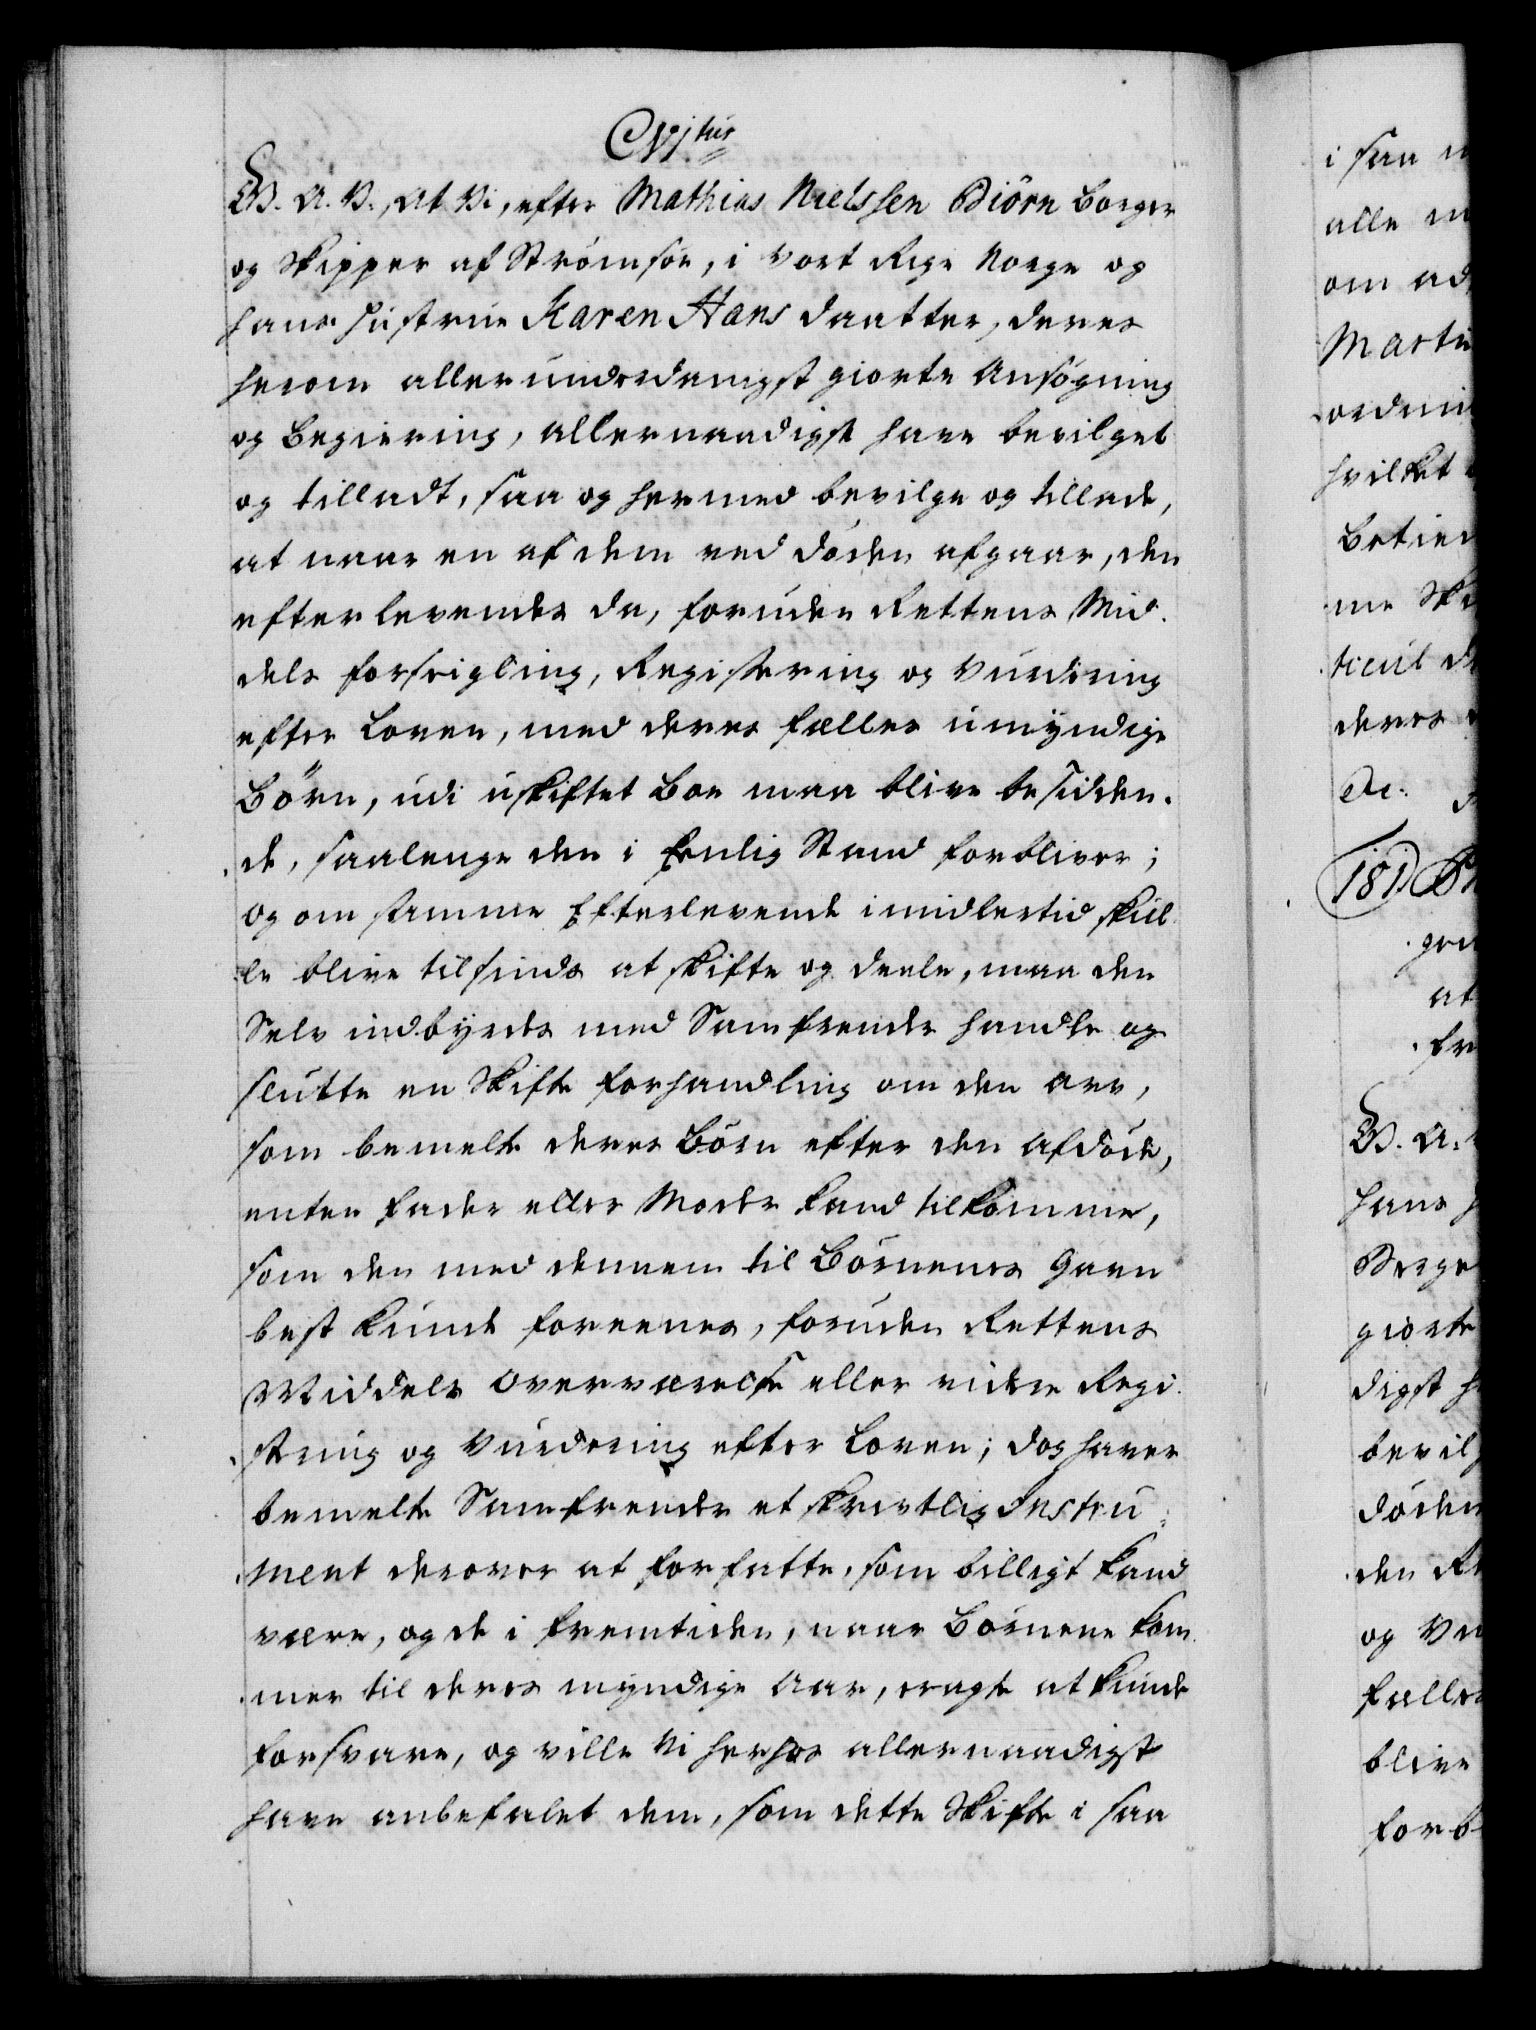 CVItus
G. A. V., at Vi, efter Mathias Nielssen Biörn Borger
og Skipper af Strømsøe, i vort Rige Norge og
hans Hustrue Karen Hans daatter, deres
herom allerunderdanigst giorte Ansøgning
og Begiering, allernaadigst have bevilget
og tilladt, saa og hermed bevilge og tillade,
at naar en af dem ved døden afgaar, den
efterlevende da, foruden Rettens Mid-
dels forseigling, Registering og Vurdering
efter Loven, med deres fælles umyndige
Børn, udi uskiftet Boe maa blive besidden-
de, saalenge den i Eenlig Stand forbliver;
og om samme Efterlevende imidlertid skul-
le blive tilsinds at skifte og deele, maa den
Selv indbyrdes med Samfrender handle og
slutte en Skifte forhandling om den arv,
som bemelte deres Børn efter den Afdøde,
enten fader eller Moder kand tilkomme,
som den med dennem til Børnenes Gavn
best kunde foreenes, foruden Rettens
Middels Overværelse eller videre Regi-
string og Vurdering efter Loven; dog haver
bemelte Samfrender et skrivtlig Instru-
ment derover at forfatte, som billigt kand
være, og de i fremtiden, naar Børnene kom-
mer til deres myndige Aar, agte at kunde
forsvare, og ville Vi herhos allernaadigst
have anbefalet dem, som dette Skifte i saa
i saa
alle
om
hvilket
deres
181
at
G. A.
hans
giorte
digst
bevil
døden
den
og
fælles
blive
forb